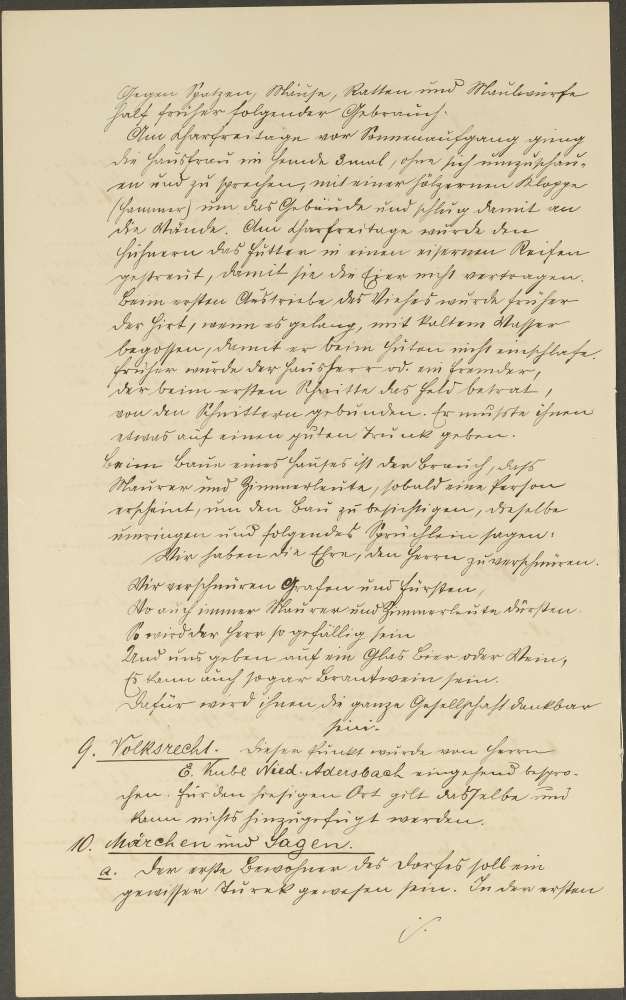 Gegen Spatzen, Mäuse, Ratten und Maulwürfe
half früher folgender Gebrauch.
Am Charfreitage vor Sonnenaufgang ging
die Hausfrau im Hemde 3mal, ohne sich umzuschau-
en und zu sprechen, mit einer hölzernen Kloppe
(Hammer) um das Gebäude und schlug damit an
die Wände. Am Charfreitage wurde den
Hühnern das Futter in einen eisernen Reifen
gestreut, damit sie die Eier nicht vertragen.
Beim ersten Austriebe des Viehes wurde früher
der Hirt, wenn es gelang, mit kaltem Wasser
begossen, damit er beim Hüten nicht einschlafe.
Früher wurde der Hausherr od. ein Fremder,
der beim ersten Schnitte das Feld betrat,
von den Schnittern gebunden. Er mußte ihnen
etwas auf einen guten Trunk geben.
Beim Baue eines Hauses ist der Brauch, daß
Maurer und Zimmerleute, sobald eine Person
erscheint, um den Bau zu besichtigen, dieselbe
umringen und folgendes Sprüchlein sagen:
Wir haben die Ehre, den Herrn zu verschnüren.
Wir verschnüren Grafen und Fürsten,
Wo auch immer Maurer und Zimmerleute dürsten.
So wird der Herr so gefällig sein
Und uns geben auf ein Glas Bier oder Wein,
Es kann auch sogar Brantwein sein.
Dafür wird ihnen die ganze Gesellschaft dankbar
sein.
9. Volksrecht. Dieser Punkt wurde von Herrn
E. Kube Nied.-Adersbach eingehend bespro-
chen. Für den hiesigen Ort gilt dasselbe und
kann nichts hinzugefügt werden.
10. Märchen und Sagen.
a. Der erste Bewohner des Dorfes soll ein
gewisser Turek gewesen sein. In den ersten